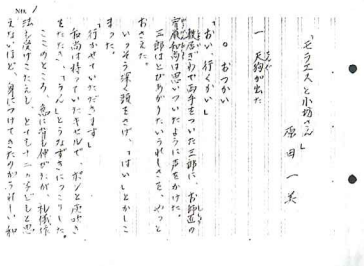 「モラエスと小坊さん」
原田一美
一 天狗が出た
。おつかい
「おい、行くかい」
敷居ぎわで両手をついた三郎に、お師匠の
宝厳和尚は思いついたように声をかけた。
三郎はとびあがりたいうれしさを、やっと
おさえた。
いっそう深く頭をさげ、「はい」とかしこ
まった。
「行かせていただきます」
和尚は持っていたキセルで、ポンと灰吹き
をたたき、「うん」とうなずきにっこりした。
ここのところ、急に背も伸びたが、礼儀作
法も受けこたえも、とても十二の子どもと思
えないほど、身につけてきたのがうれしい和